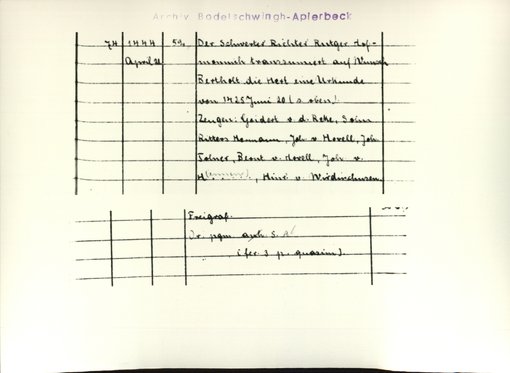 Archiv Bodelschwingh-Apierbeck
74 1444 59. Der Schwerter Richter Rutger Hof-
April 21 mannich transsumiert auf Wunsch
Bertholt die Host eine Urkunde
von 1425 Juni 20 (s. oben)
Zeugen: Godert v. d. Reke, Sohn
Ritters Hermann, Joh. v. Hovell, Joh.
Tolner, Bernt v. Hovell, Joh. v.
, Hinr. v. Wirdinchusen
Freigraf.
Or. pgm S. A
(fer. 3 p. quasim).